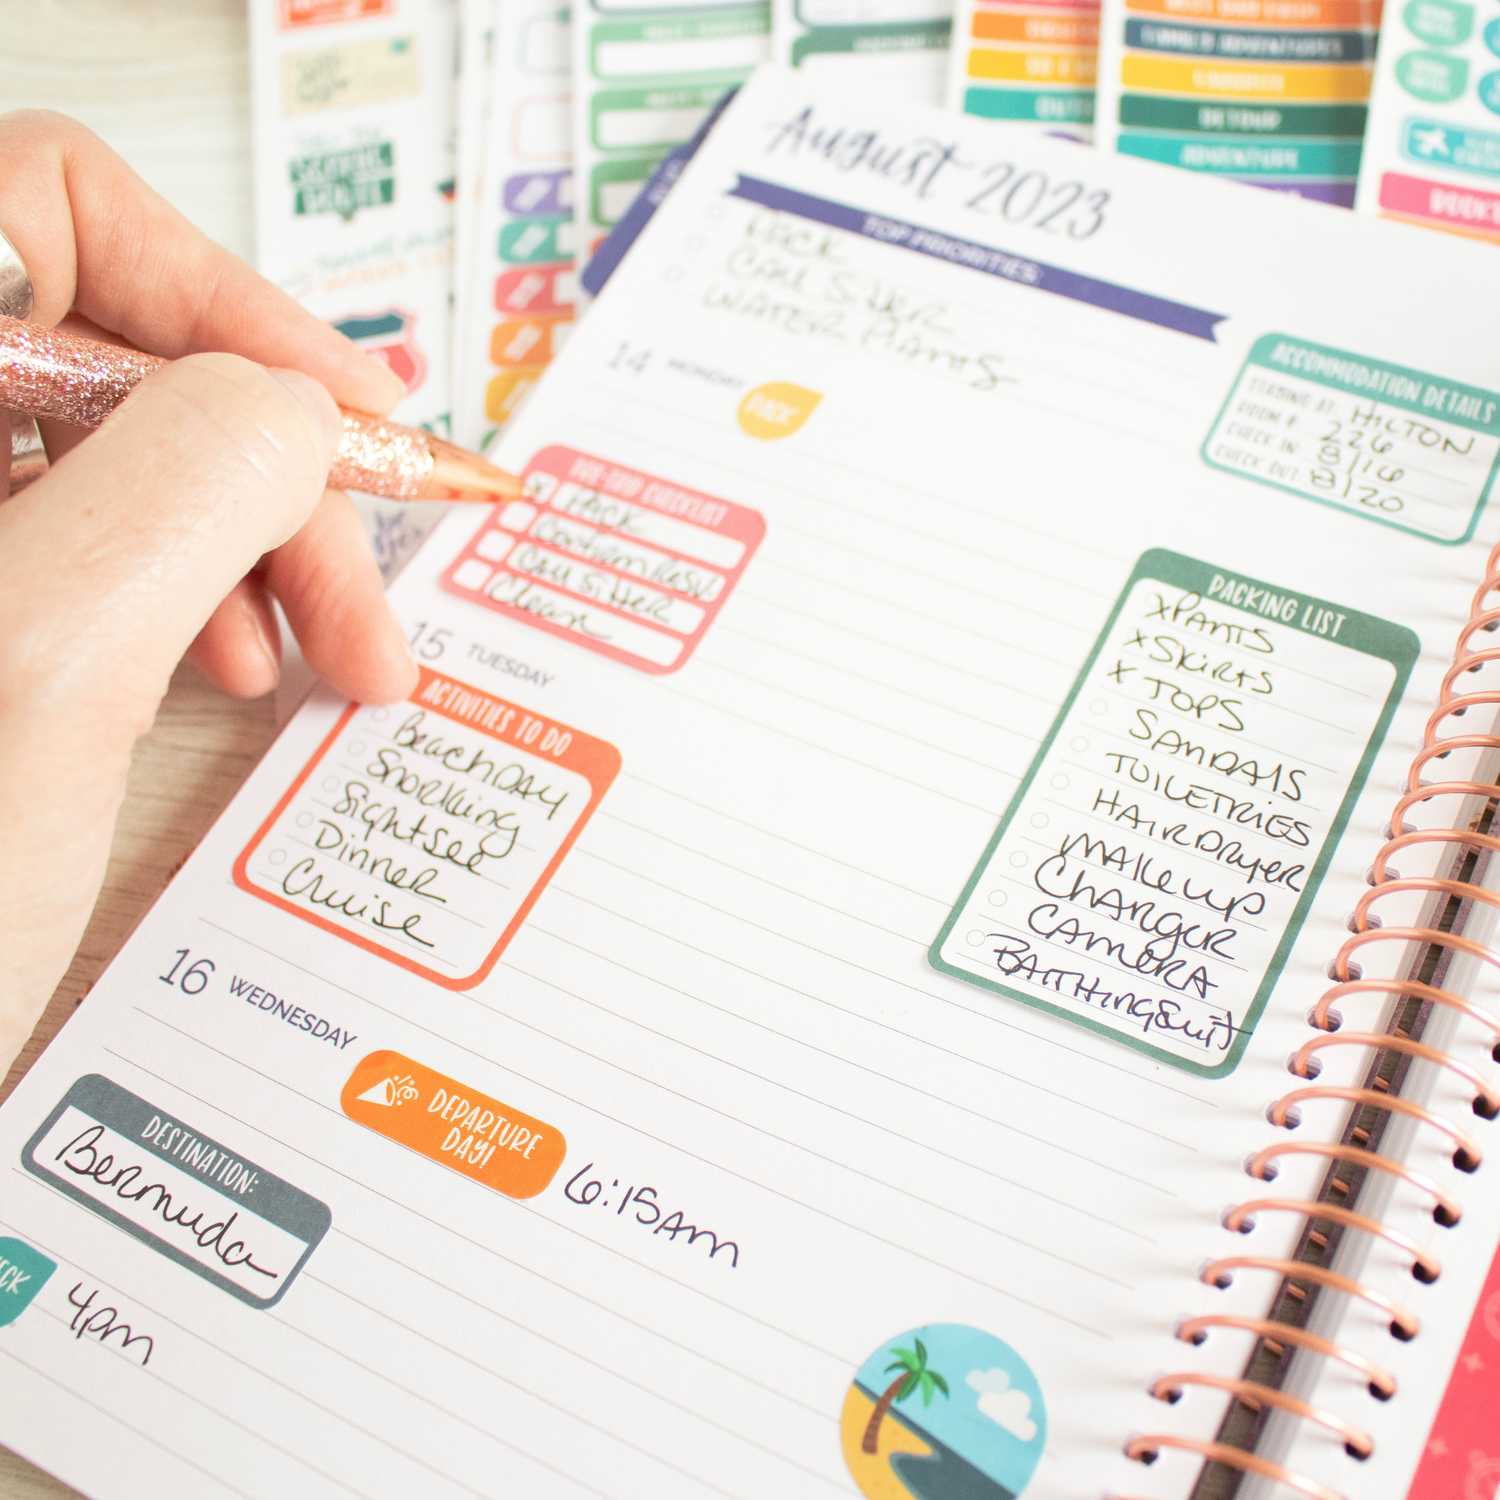 SUMMER ADVENTURES
FAVORITE
DETOUR
ADVENTURE
August 2023
TOP PRIORITIES
PACK
CALL SITTER
WATER PLANTS
14 MONDAY
PACK
ACCOMMODATION DETAILS
STAYING AT: HILTON
ROOM #: 226
CHECK IN: 8/16
CHECK OUT: 8/20
PRE-TRIP CHECKLIST
x PACK
Confirm Resv.
Call Sitter
Clean
PACKING LIST
x PANTS
x SKIRTS
x TOPS
SANDALS
TOILETRIES
HAIRDRYER
MAKEUP
CHARGER
CAMERA
BATHINGSUIT
15 TUESDAY
ACTIVITIES TO DO
BeachDAY
Snorkling
Sightsee
Dinner
Cruise
16 WEDNESDAY
DEPARTURE
DAY!
6:15AM
DESTINATION:
Bermuda
4pm